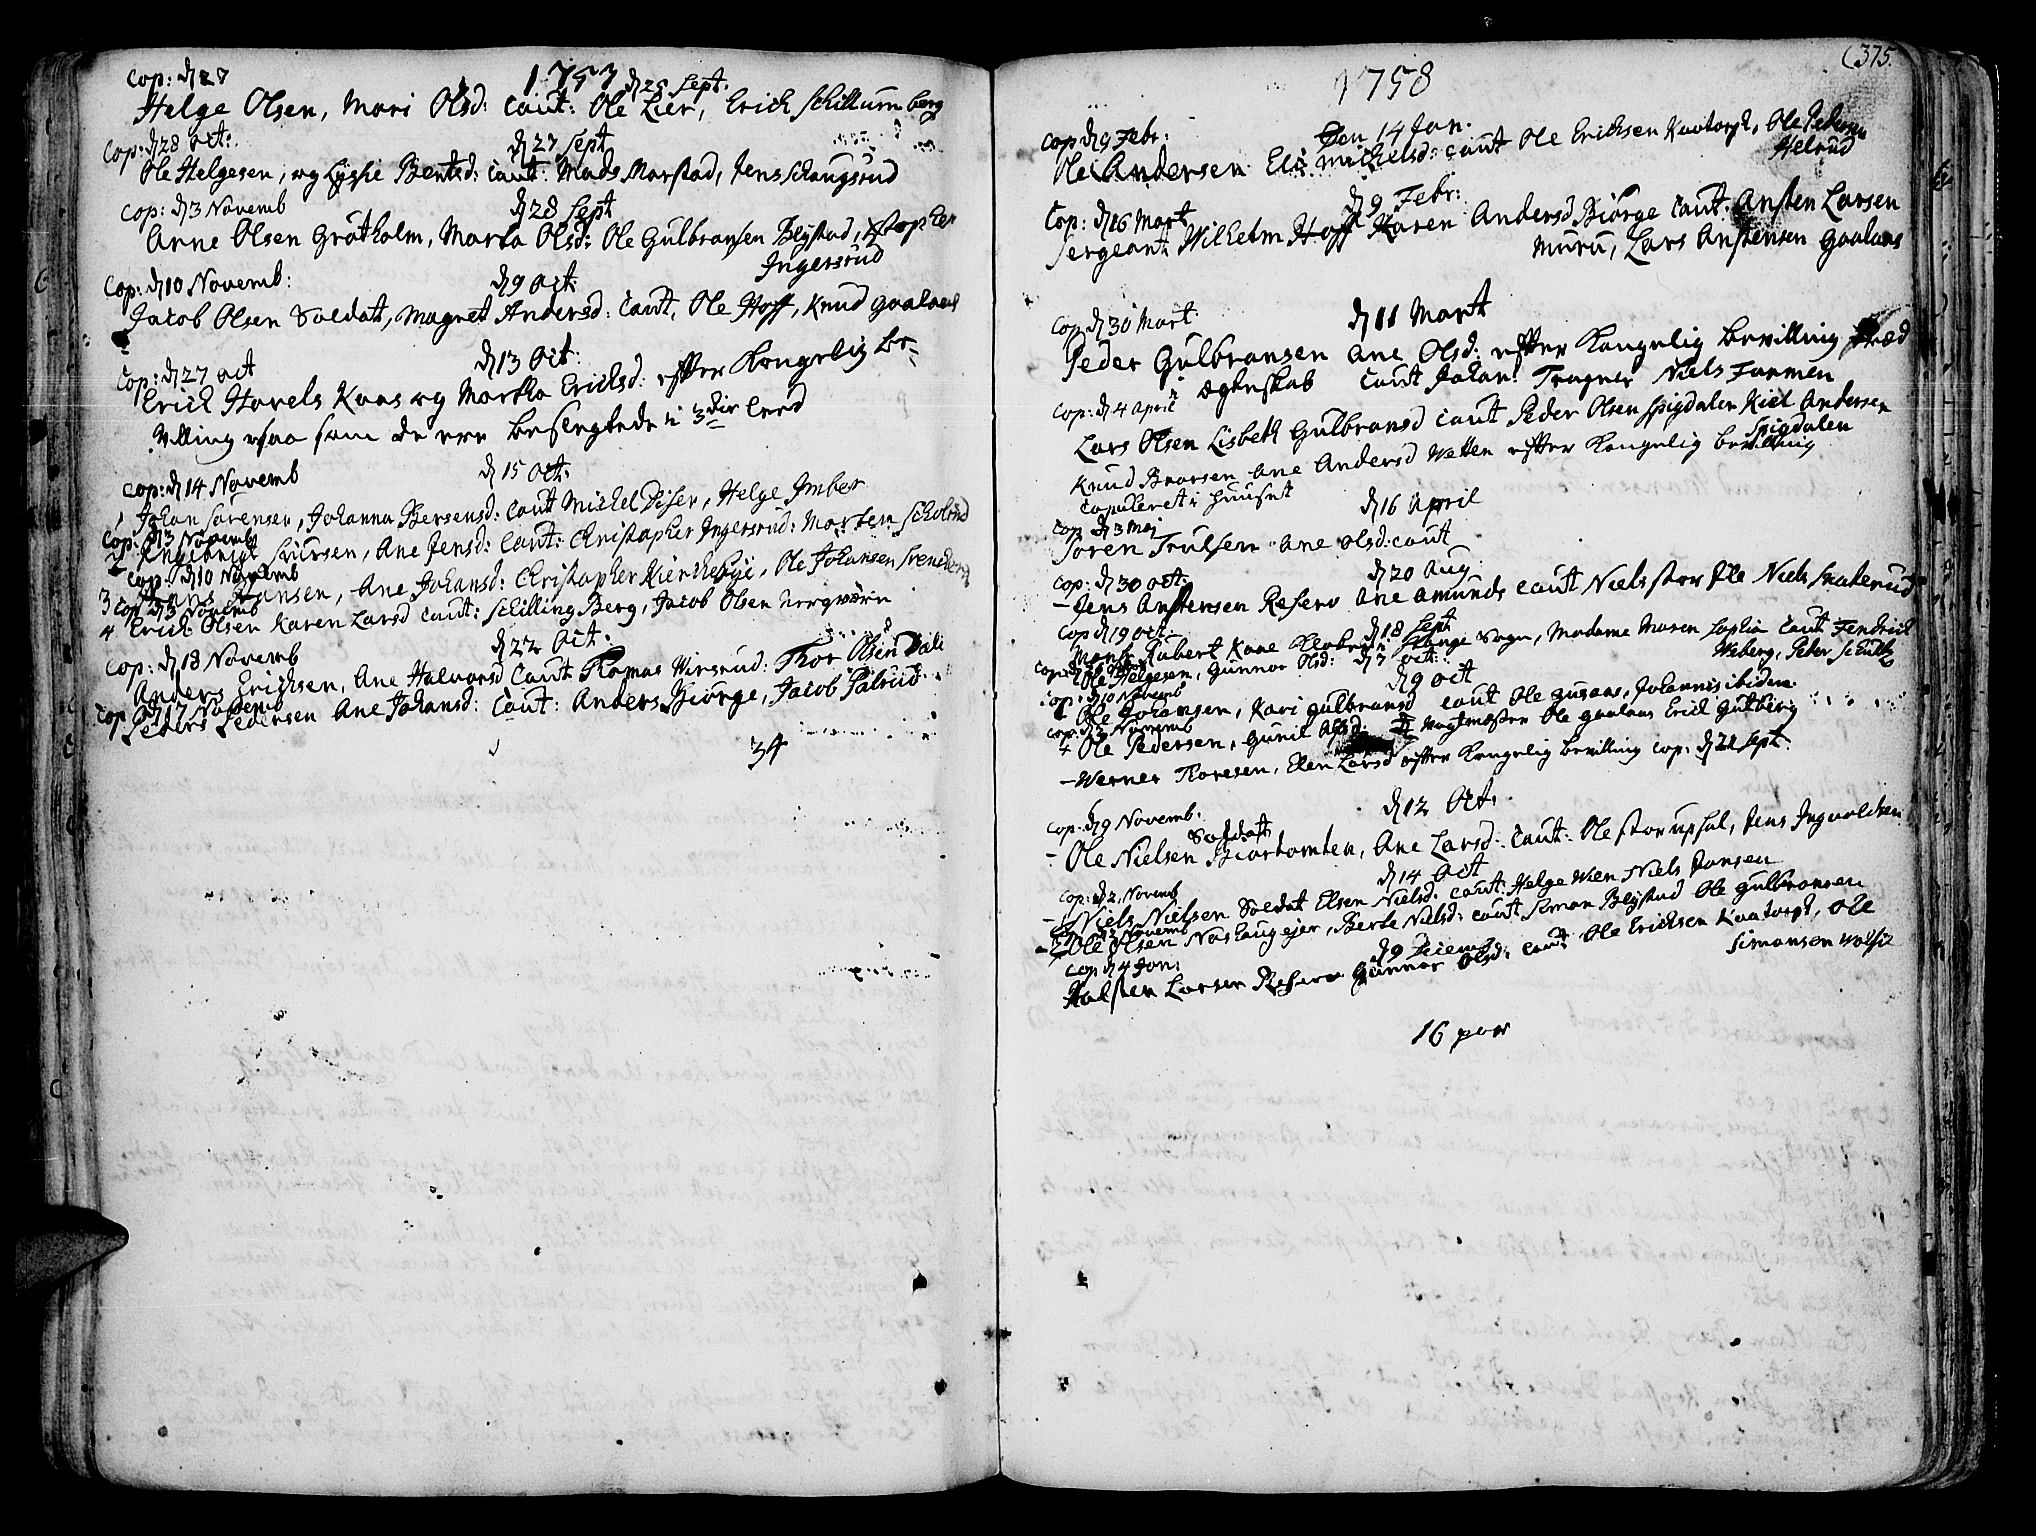 Cop: d 27
1757
d 25 Sept.
Helge Olsen, Mari Olsd: Caut: Ole Lier, Erich Schillumberg
Cop: d 28 Oct:
d 27 Sept
Ole Helgesen, og Bentsd: Caut: Mads Morstad, Jens Schaugsrud
Cop: d 3 Novemb
d 28 Sept
Arne Olsen Grøtholm, Marta Olsd: Ole Gulbransen Blystad, Xstopher
Ingersrud
Cop: d 10 Novemb:
d 9 Oct:
Jacob Olsen Soldatt, Magret Andersd: Caut, Ole Hoff, Knud Gaalaas
d 13 Oct:
Cop: d 27 Oct
Erich Hovels Kaas og Martha Ericksd: efter Kongelig Be-
villing saa som de ere besvegtede i 3die Leed
d 15 Oct:
Cop: d 14 Novemb
1 Johan Sørensen, Johanna Bersensd: Caut Michel Diser, Helge Imber
Cop: d 3 Novemb
2 Engebrigt Siursen, Ane Jensd: Caut: Christopher Ingersrud: Morten Scholrud
Cop: d 10 Novemb
3 Hans Hansen, Ane Johansd: Christopher Kierchebye, Ole Johansen Svenneberg
Cop d 3 Novemb
4 Erich Olsen Karen Larsd Caut: Schilling Berg, Jacob Olsen
d 22 Oct:
Cop: d 18 Novemb
Anders Erichsen, Ane Halvorsd Caut Thomas Wirsrud: Thor Olsen Dæli
Cop d 17 Novemb
Peders Pedersen Ane Johansd: Caut: Anders Biørge, Jacob Pålrud
34
(375.
1758
Den 14 Jan.
Cop d 9 Febr:
Ole Andersen Eli Michelsd: Caut Ole Ericksen Kaatorp, Ole Pedersen
Helrud
d 9 Febr:
Cop: d 16 Mart
Sergeant Wilhelm Hoff Karen Andersd Biørge Caut: Ansten Larsen
Muru, Lars Anstensen Gaalaas
d 11 Mart
Cop d 30 Mart
Peder Gulbransen Ane Olsd: efter Kongelig Bevilling
i Ægteskab Caut Johan: Tragner Niels Farmen
Cop: d 4 April
Lars Olsen Lisbeth Gulbransd Caut Peder Olsen Spigdalen Kiel Andersen
Spigdalen
Knud Brorsen Ane Andersd Wetten efter Kongelig Bevilling
Copuleret i Huuset
d 16 April
Cop d 3 Maj
Soren Trulsen Ane Olsd: Caut
d 20 Aug
Cop: d 30 Oct:
- Jens Anstensen Reserv Ane Amunds Caut Niels stor Ile Niels Skakerud
d 18 Sept
Cop d 19 Oct
Mons: Rubert Kaae Stange Sogn, Madame Maren Sophia Caut Fendrich
Weberg, Peder Schultz
Ole Helgesen, Gunnor Olsd: d 7 Oct:
d 9 Oct
Cop: d 10 Novemb
1 Ole Goransen, Kari Gulbransd Caut Ole Gusaas, Johannis ibidem
Cop: d 3 Novemb
4 Ole Pedersen, Gunil Olsd: Vagtmester Ole Gaalaas Erick Gutberg
- Werner Thoresen, Elen Larsd efter Kongelig Bevilling Cop: d 21 Sept:
d 12 Oct:
Cop: d 9 Novemb:
Soldatt
- Ole Nielsen Biortomten, Ane Larsd: Caut: Ole storupsal, Jens Ingvoldsen
d 14 Oct
Cop: d 2 Novemb
- Niels Nielsen Soldat Elsen Nielsd: Caut: Helge Wien Niels Hansen
Novemb
- Ole Olsen Noshaugejer, Berte Nielsd: Caut Simon Blystad Ole Gulbransen
d 9 Decemb
Cop d 4 Jan:
Halsten Larsen Reserv Gunnor Olsd: Caut Ole Ericksen Kaatorp, Ole
Simonsen Wolsie
16 par